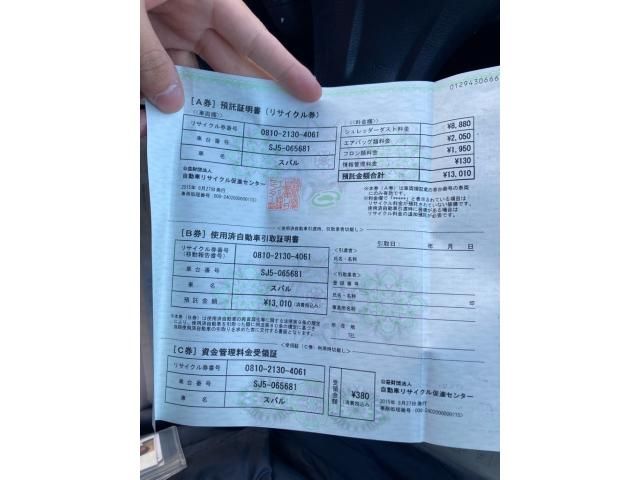 0129430666
[A券] 預託証明書(リサイクル券)
≪車両欄≫
≪料金欄≫
リサイクル券番号 0810-2130-4061
車台番号 SJ5-065681
車名 スバル
シュレッダーダスト料金 ¥8,880
エアバッグ類料金 ¥2,050
フロン類料金 ¥1,950
情報管理料金 ¥130
預託金額合計 ¥13,010
公益財団法人
自動車リサイクル促進センター
2015年 5月27日発行
※本券(A券)は車両欄記載の車台番号の車両
にのみ有効です。
[B券] 使用済自動車引取証明書
引取日 年 月 日
リサイクル券番号
(移動報告番号) 0810-2130-4061
車台番号 SJ5-065681
車名 スバル
預託金額 ¥13,010(消費税込み)
<引渡者>
氏名・名称
<引取業者>
登録番号
氏名・名称 印
事業所名
所在地
TEL
[C券] 資金管理料金受領証
リサイクル券番号 0810-2130-4061
車台番号 SJ5-065681
車名 スバル
受領金額 ¥380
(消費税込み)
公益財団法人
自動車リサイクル促進センター
2015年 5月27日発行